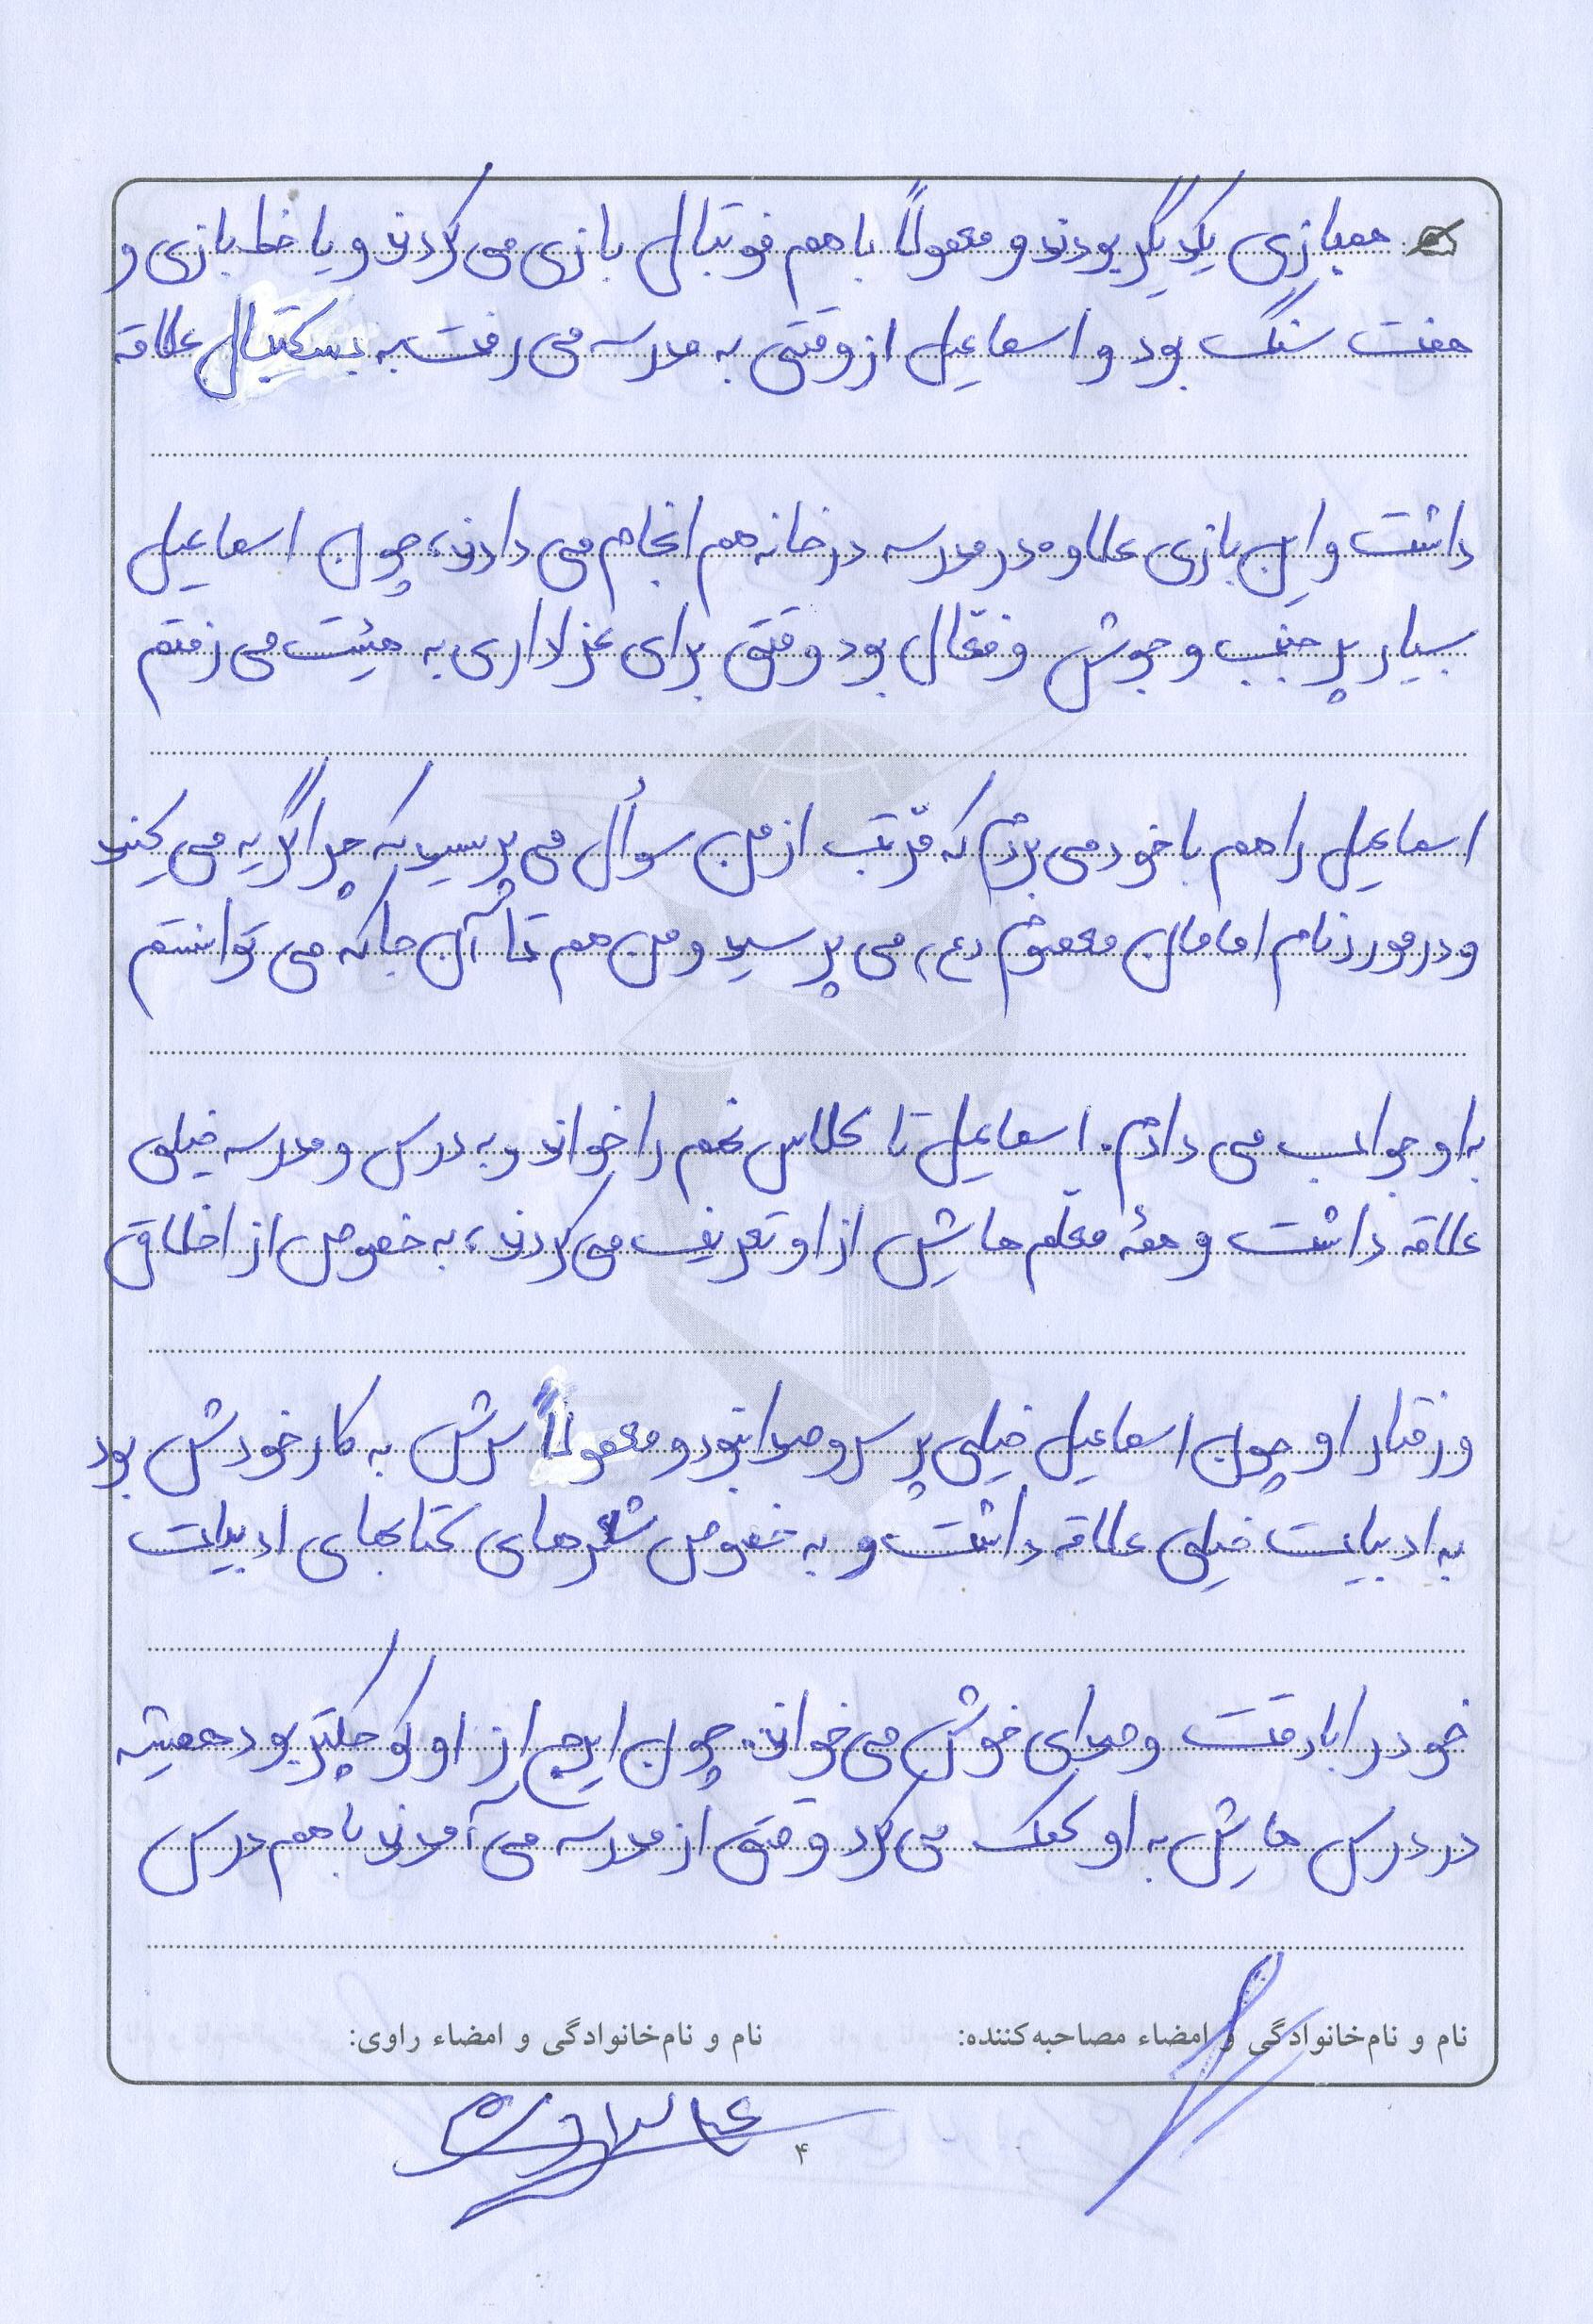 همبازی یکدیگر بودند و معمولاً با هم فوتبال بازی می کردند و یا خط بازی و
هفت سنگ بود و اسماعیل از وقتی به مدرسه می رفت به بسکتبال علاقه
داشت و این بازی علاوه در مدرسه در خانه هم انجام می دادند، چون اسماعیل
بسیار پر جنب و جوش و فعّال بود وقتی برای عزاداری به هیئت می رفتم
اسماعیل را هم با خود می بردم که مرّتب از من سوأل می پرسید که چرا گریه می کنید
و در مورد نام امامان معصوم (ع) می پرسید و من هم تا آن جا که می توانستم
به او جواب می دادم. اسماعیل تا کلاس نهم را خواند و به درس و مدرسه خیلی
علاقه داشت و همۀ معلّم هایش از او تعریف می کردند، به خصوص از اخلاق
و رفتار او چون اسماعیل خیلی پر سر و صدا نبود و معمولاً سرش به کار خودش بود
به ادبیات خیلی علاقه داشت و به خصوص شعرهای کتابهای ادبیات
خود را با دقت و صدای خوش می خواند. چون ایرج از او کوچکتر بود همیشه
در درس هایش به او کمک می کرد وقتی از مدرسه می آمدند با هم درس
نام و نام‌خانوادگی و امضاء مصاحبه‌کننده:
نام و نام‌خانوادگی و امضاء راوی:
۴